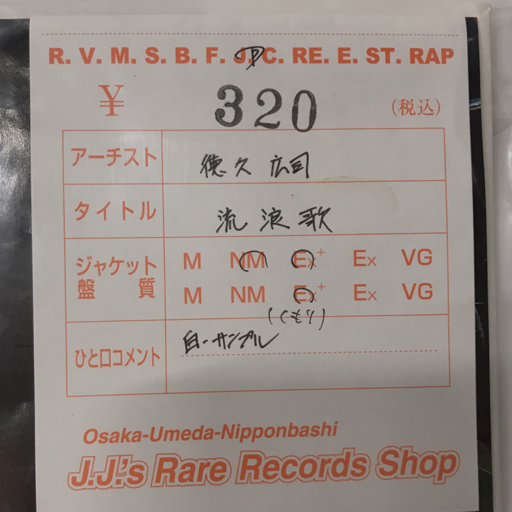 R. V. M. S. B. F. J. P C. RE. E. ST. RAP
¥ 320 (税込)
アーチスト 徳久広司
タイトル 流浪歌
ジャケット M NM Ex+ Ex VG
盤質 M NM Ex+ Ex VG
(くもり)
ひと口コメント 白・サンプル
Osaka-Umeda-Nipponbashi
J.J.'s Rare Records Shop